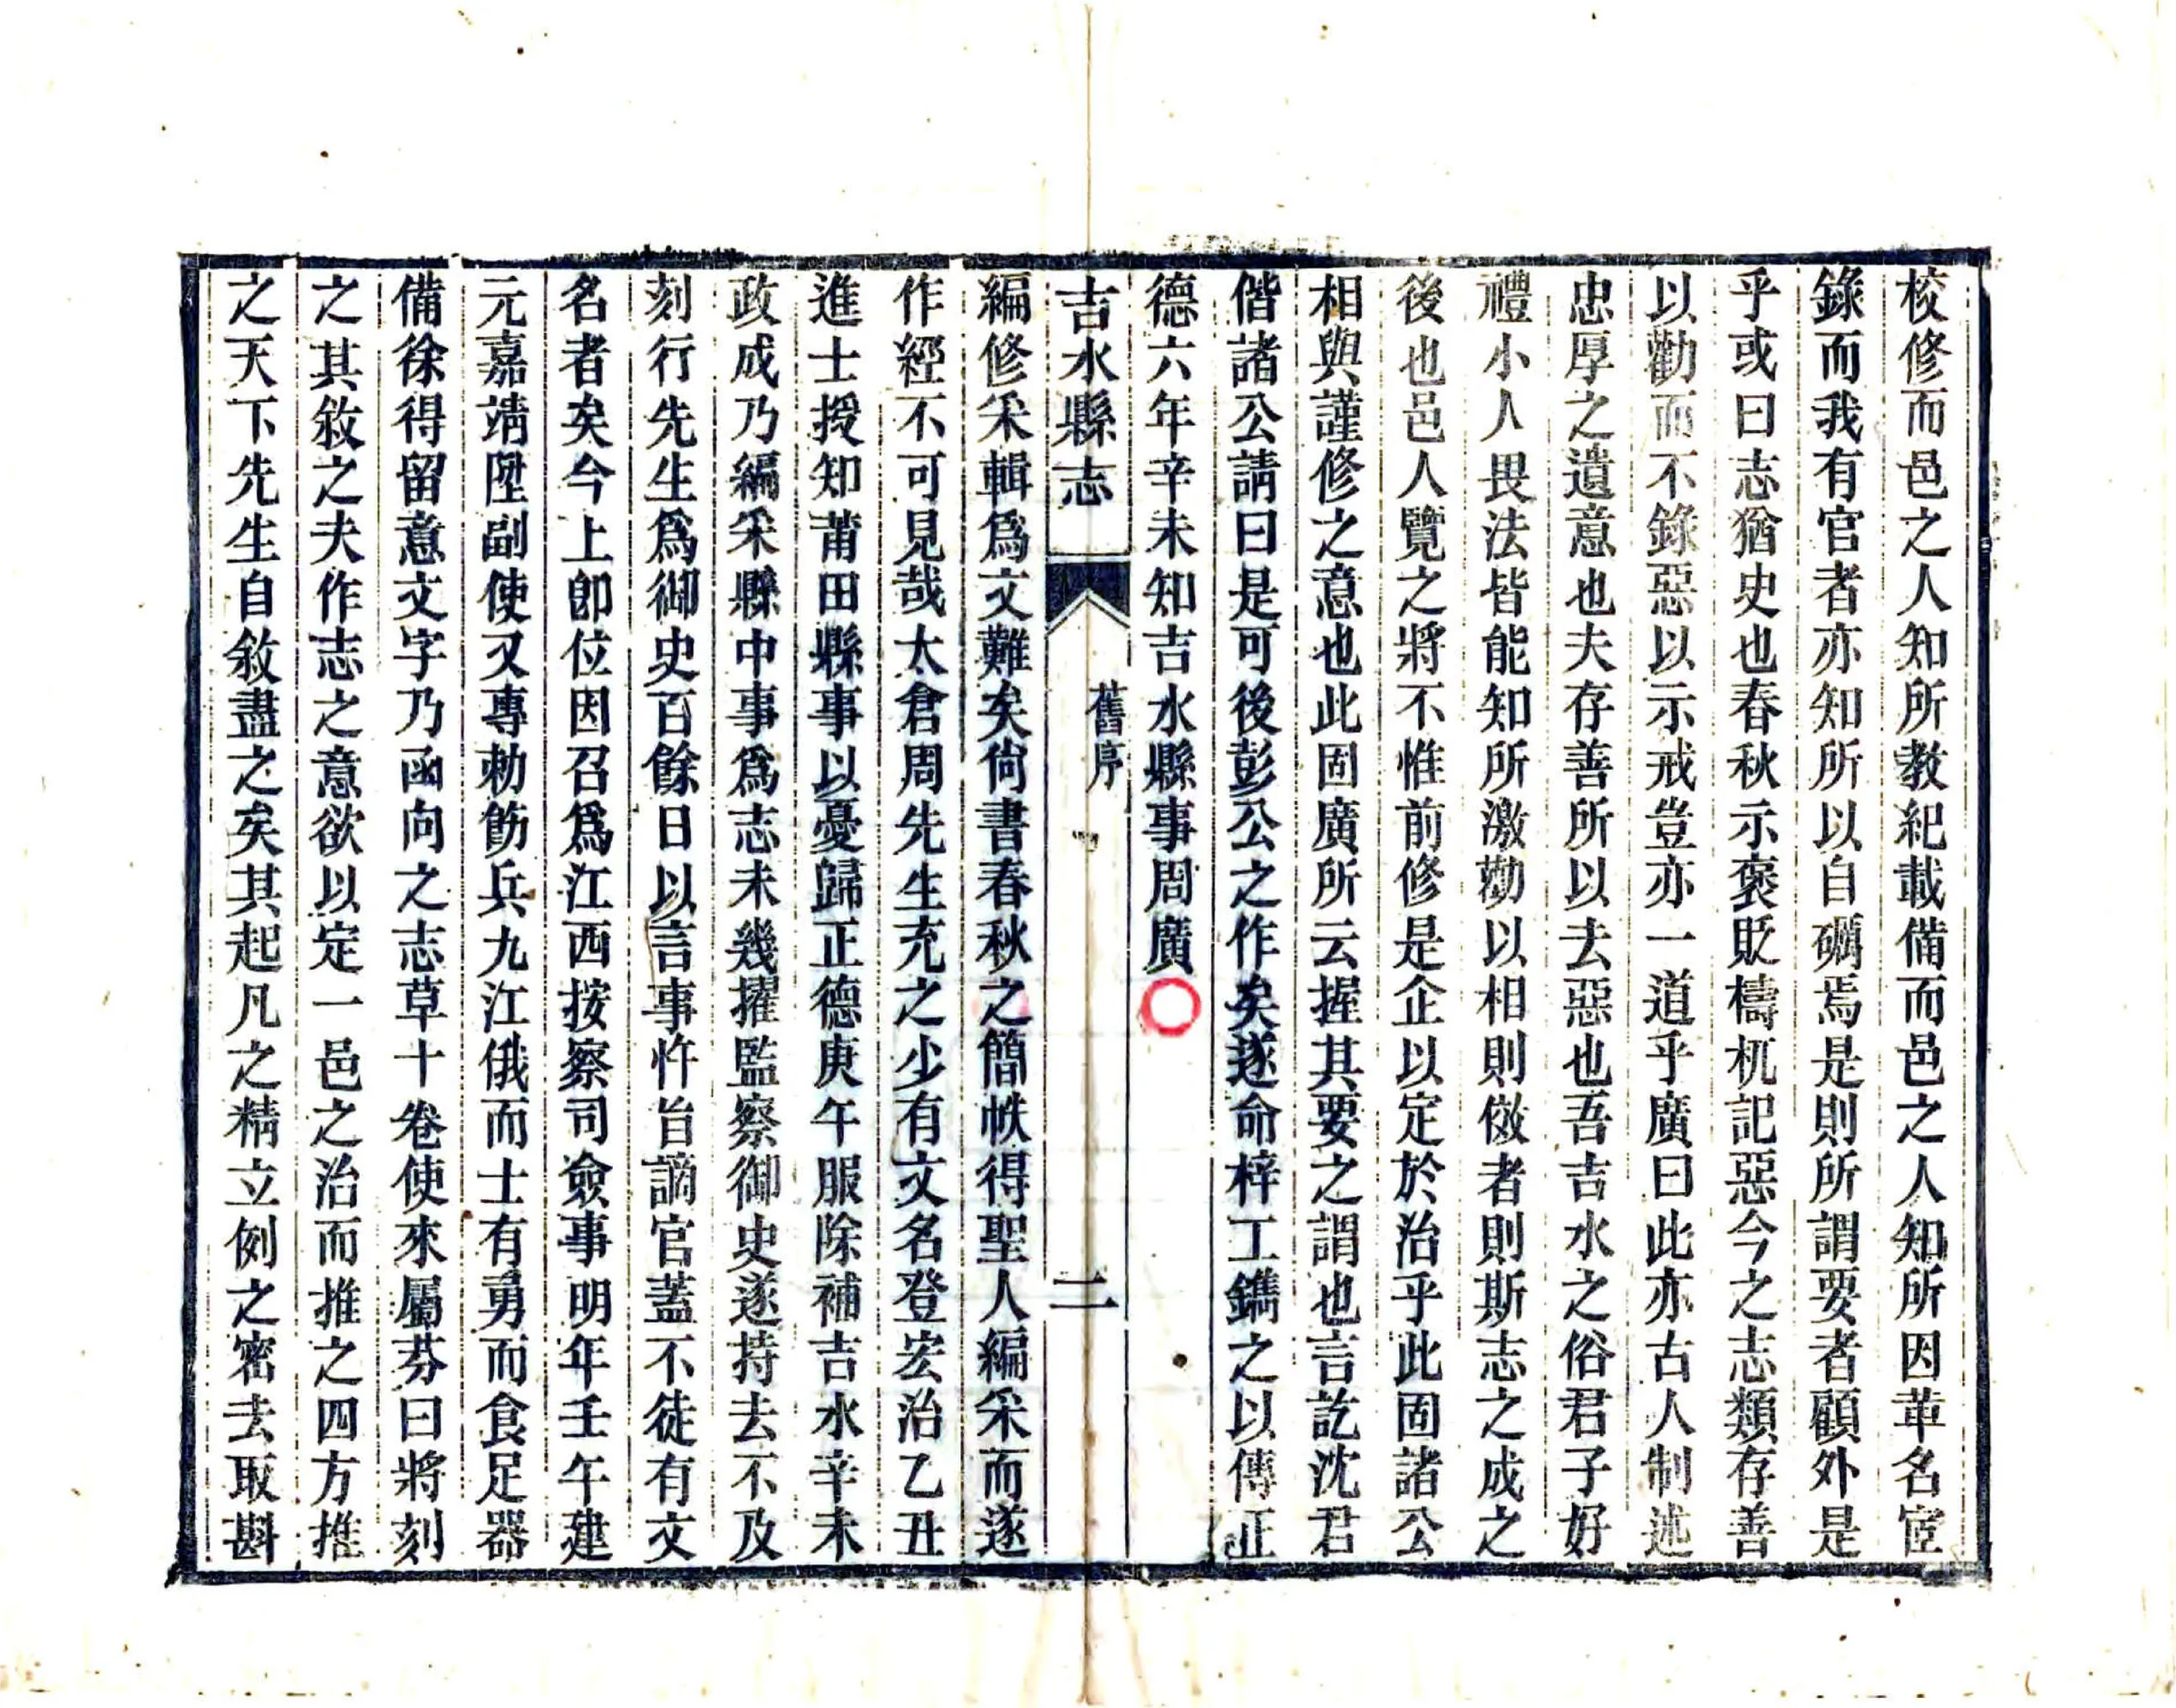 校修而邑之人知所教紀載備而邑之人知所因革名宦
錄而我有官者亦知所以自礪焉是則所謂要者顧外是
乎或曰志猶史也春秋示褒貶檮杌記惡今之志類存善
以勸而不錄惡以示戒豈亦一道乎廣曰此亦古人制述
忠厚之遺意也夫存善所以去惡也吾吉水之俗君子好
禮小人畏法皆能知所激勸以相則傚者則斯志之成之
後也邑人覽之將不惟前修是企以定於治乎此固諸公
相與謹修之意也此固廣所云握其要之謂也言訖沈君
偕諸公請曰是可後彭公之作矣遂命梓工鐫之以傳正
德六年辛未知吉水縣事周廣
吉水縣志 舊序 二
編修采輯爲文難矣尚書春秋之簡帙得聖人編采而遂
作經不可見哉太倉周先生充之少有文名登宏治乙丑
進士授知莆田縣事以憂歸正德庚午服除補吉水辛未
政成乃編采縣中事爲志未幾擢監察御史遂持去不及
刻行先生爲御史百餘日以言事忤旨謫官蓋不徒有文
名者矣今上卽位因召爲江西按察司僉事明年壬午建
元嘉靖陞副使又專勅飭兵九江俄而士有勇而食足器
備徐得留意文字乃函向之志草十卷使來屬芬曰將刻
之其敘之夫作志之意欲以定一邑之治而推之四方推
之天下先生自敘盡之矣其起凡之精立例之密去取斟